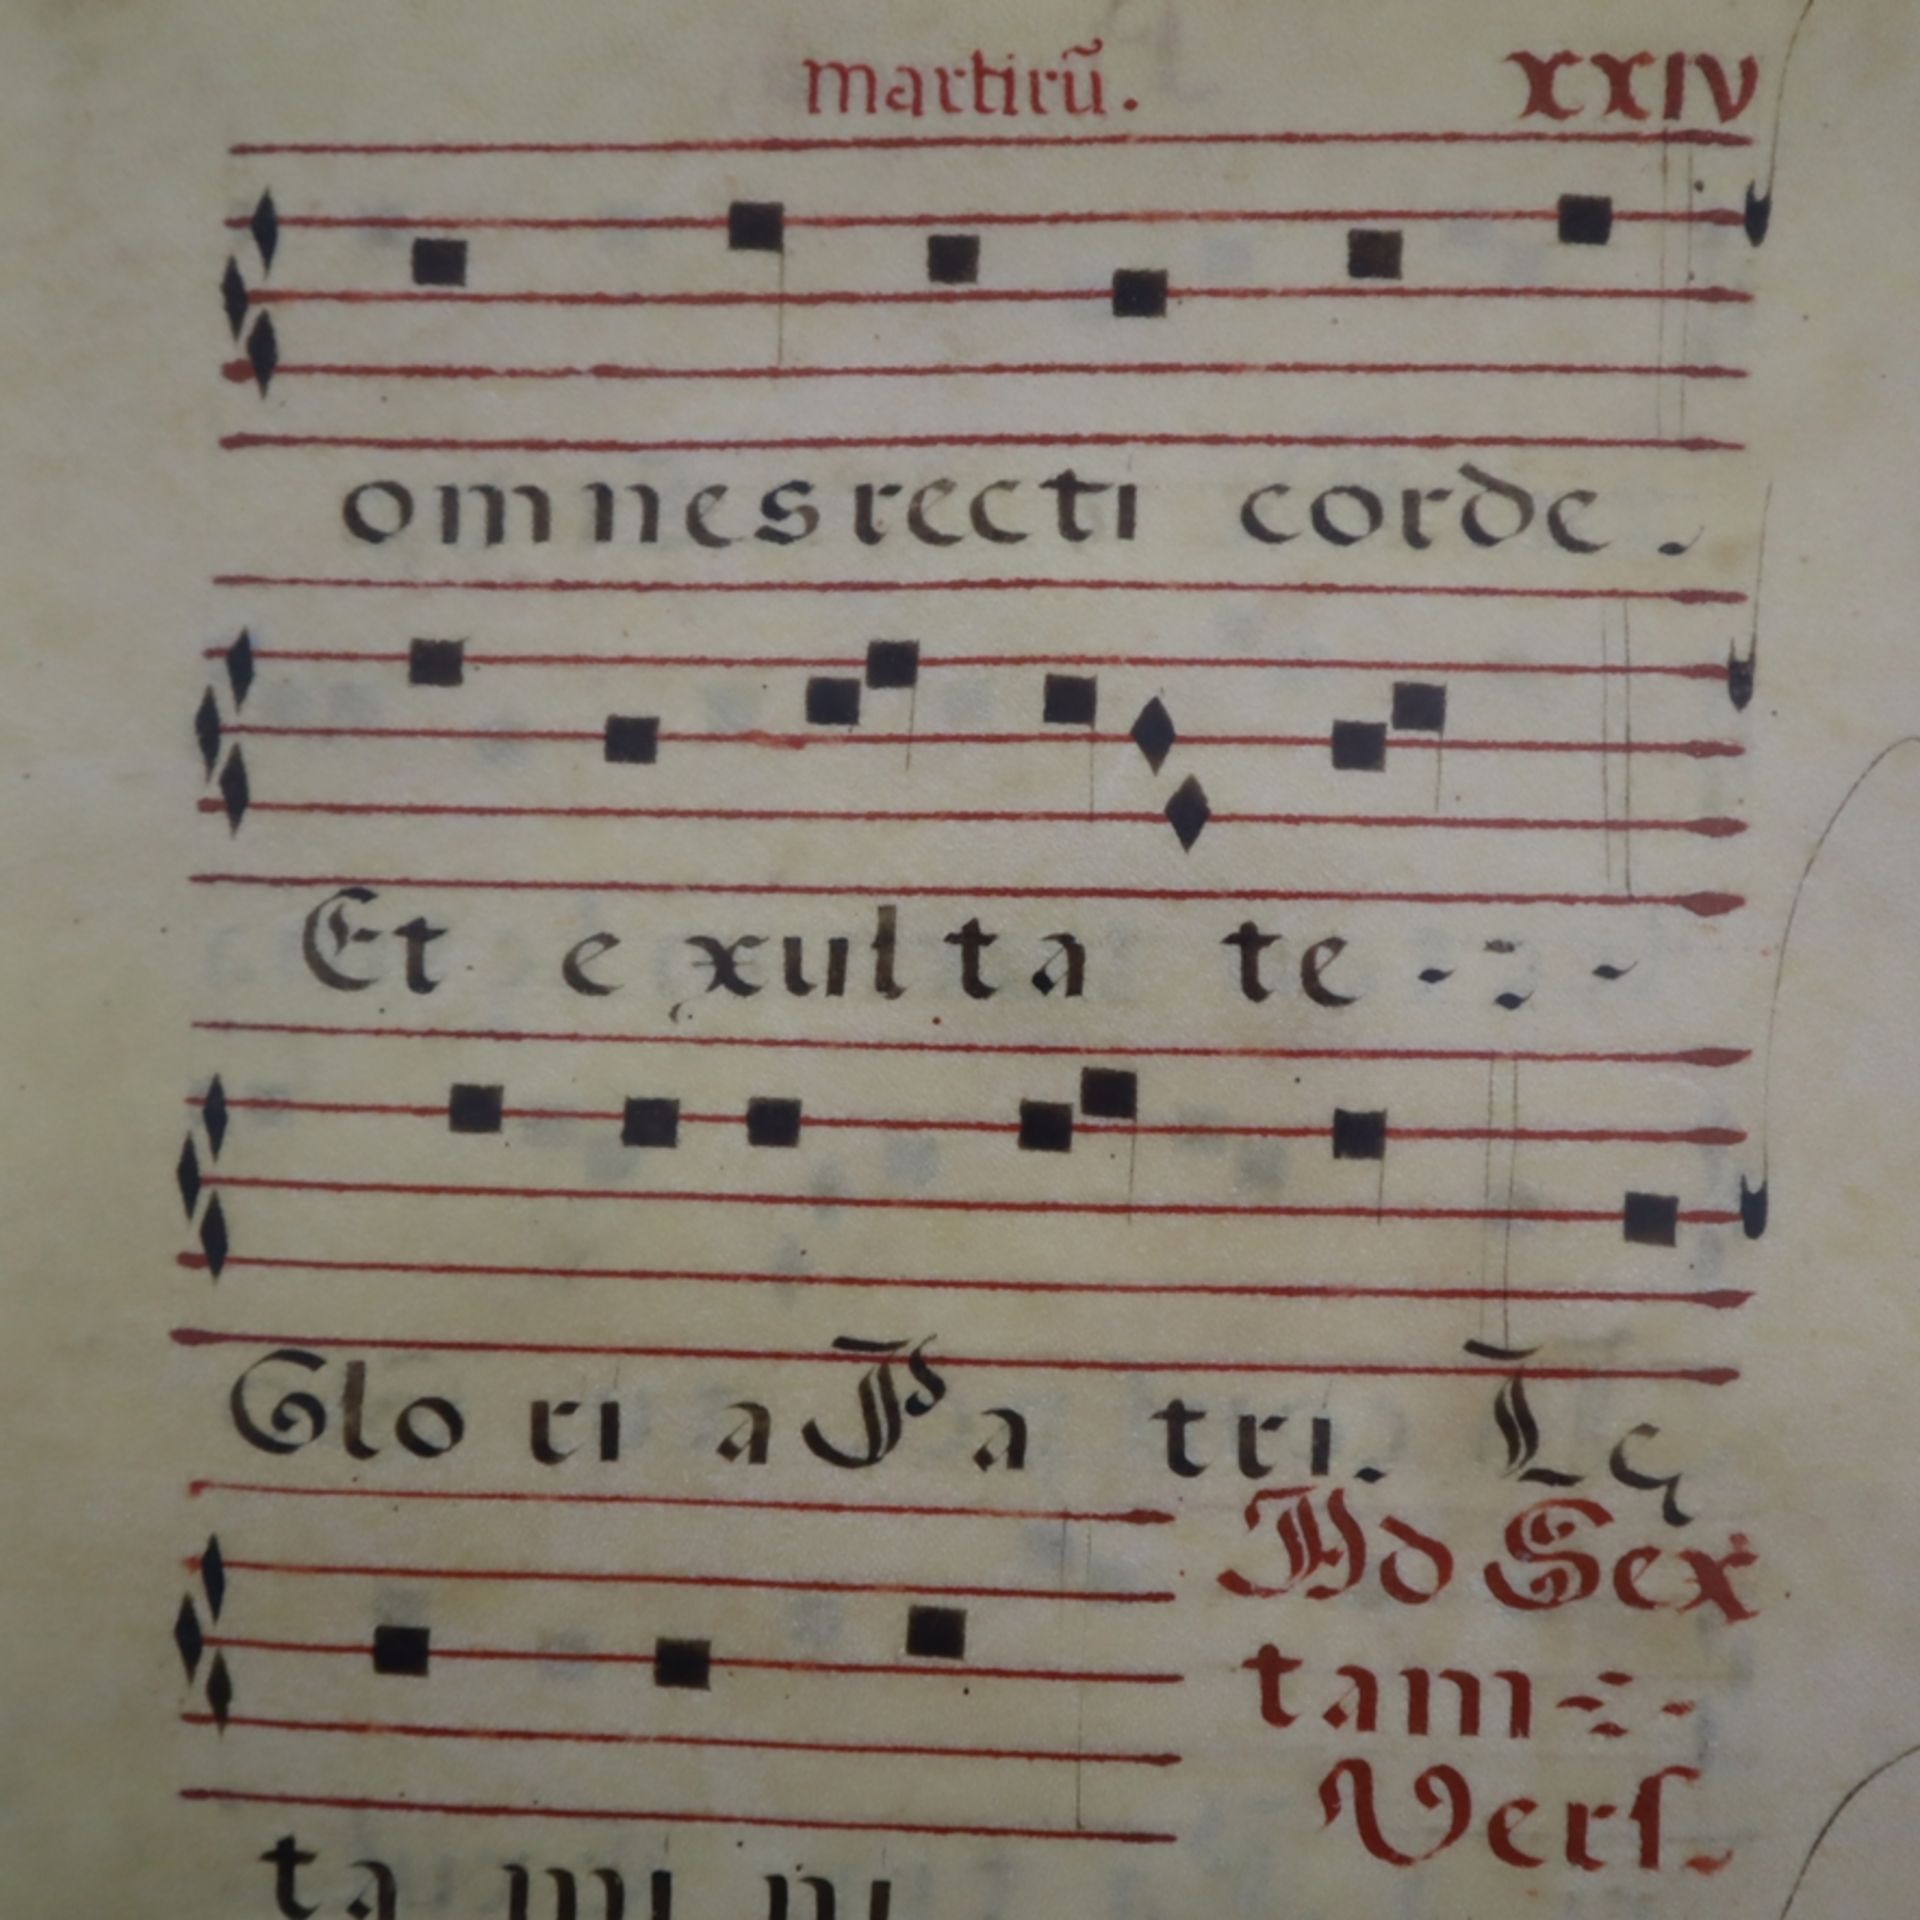 martirũ. XXIV
omnes recti corde.
Et exultate
Gloria Patri. Lę
Ad Sex
tam
Vers.
tamini